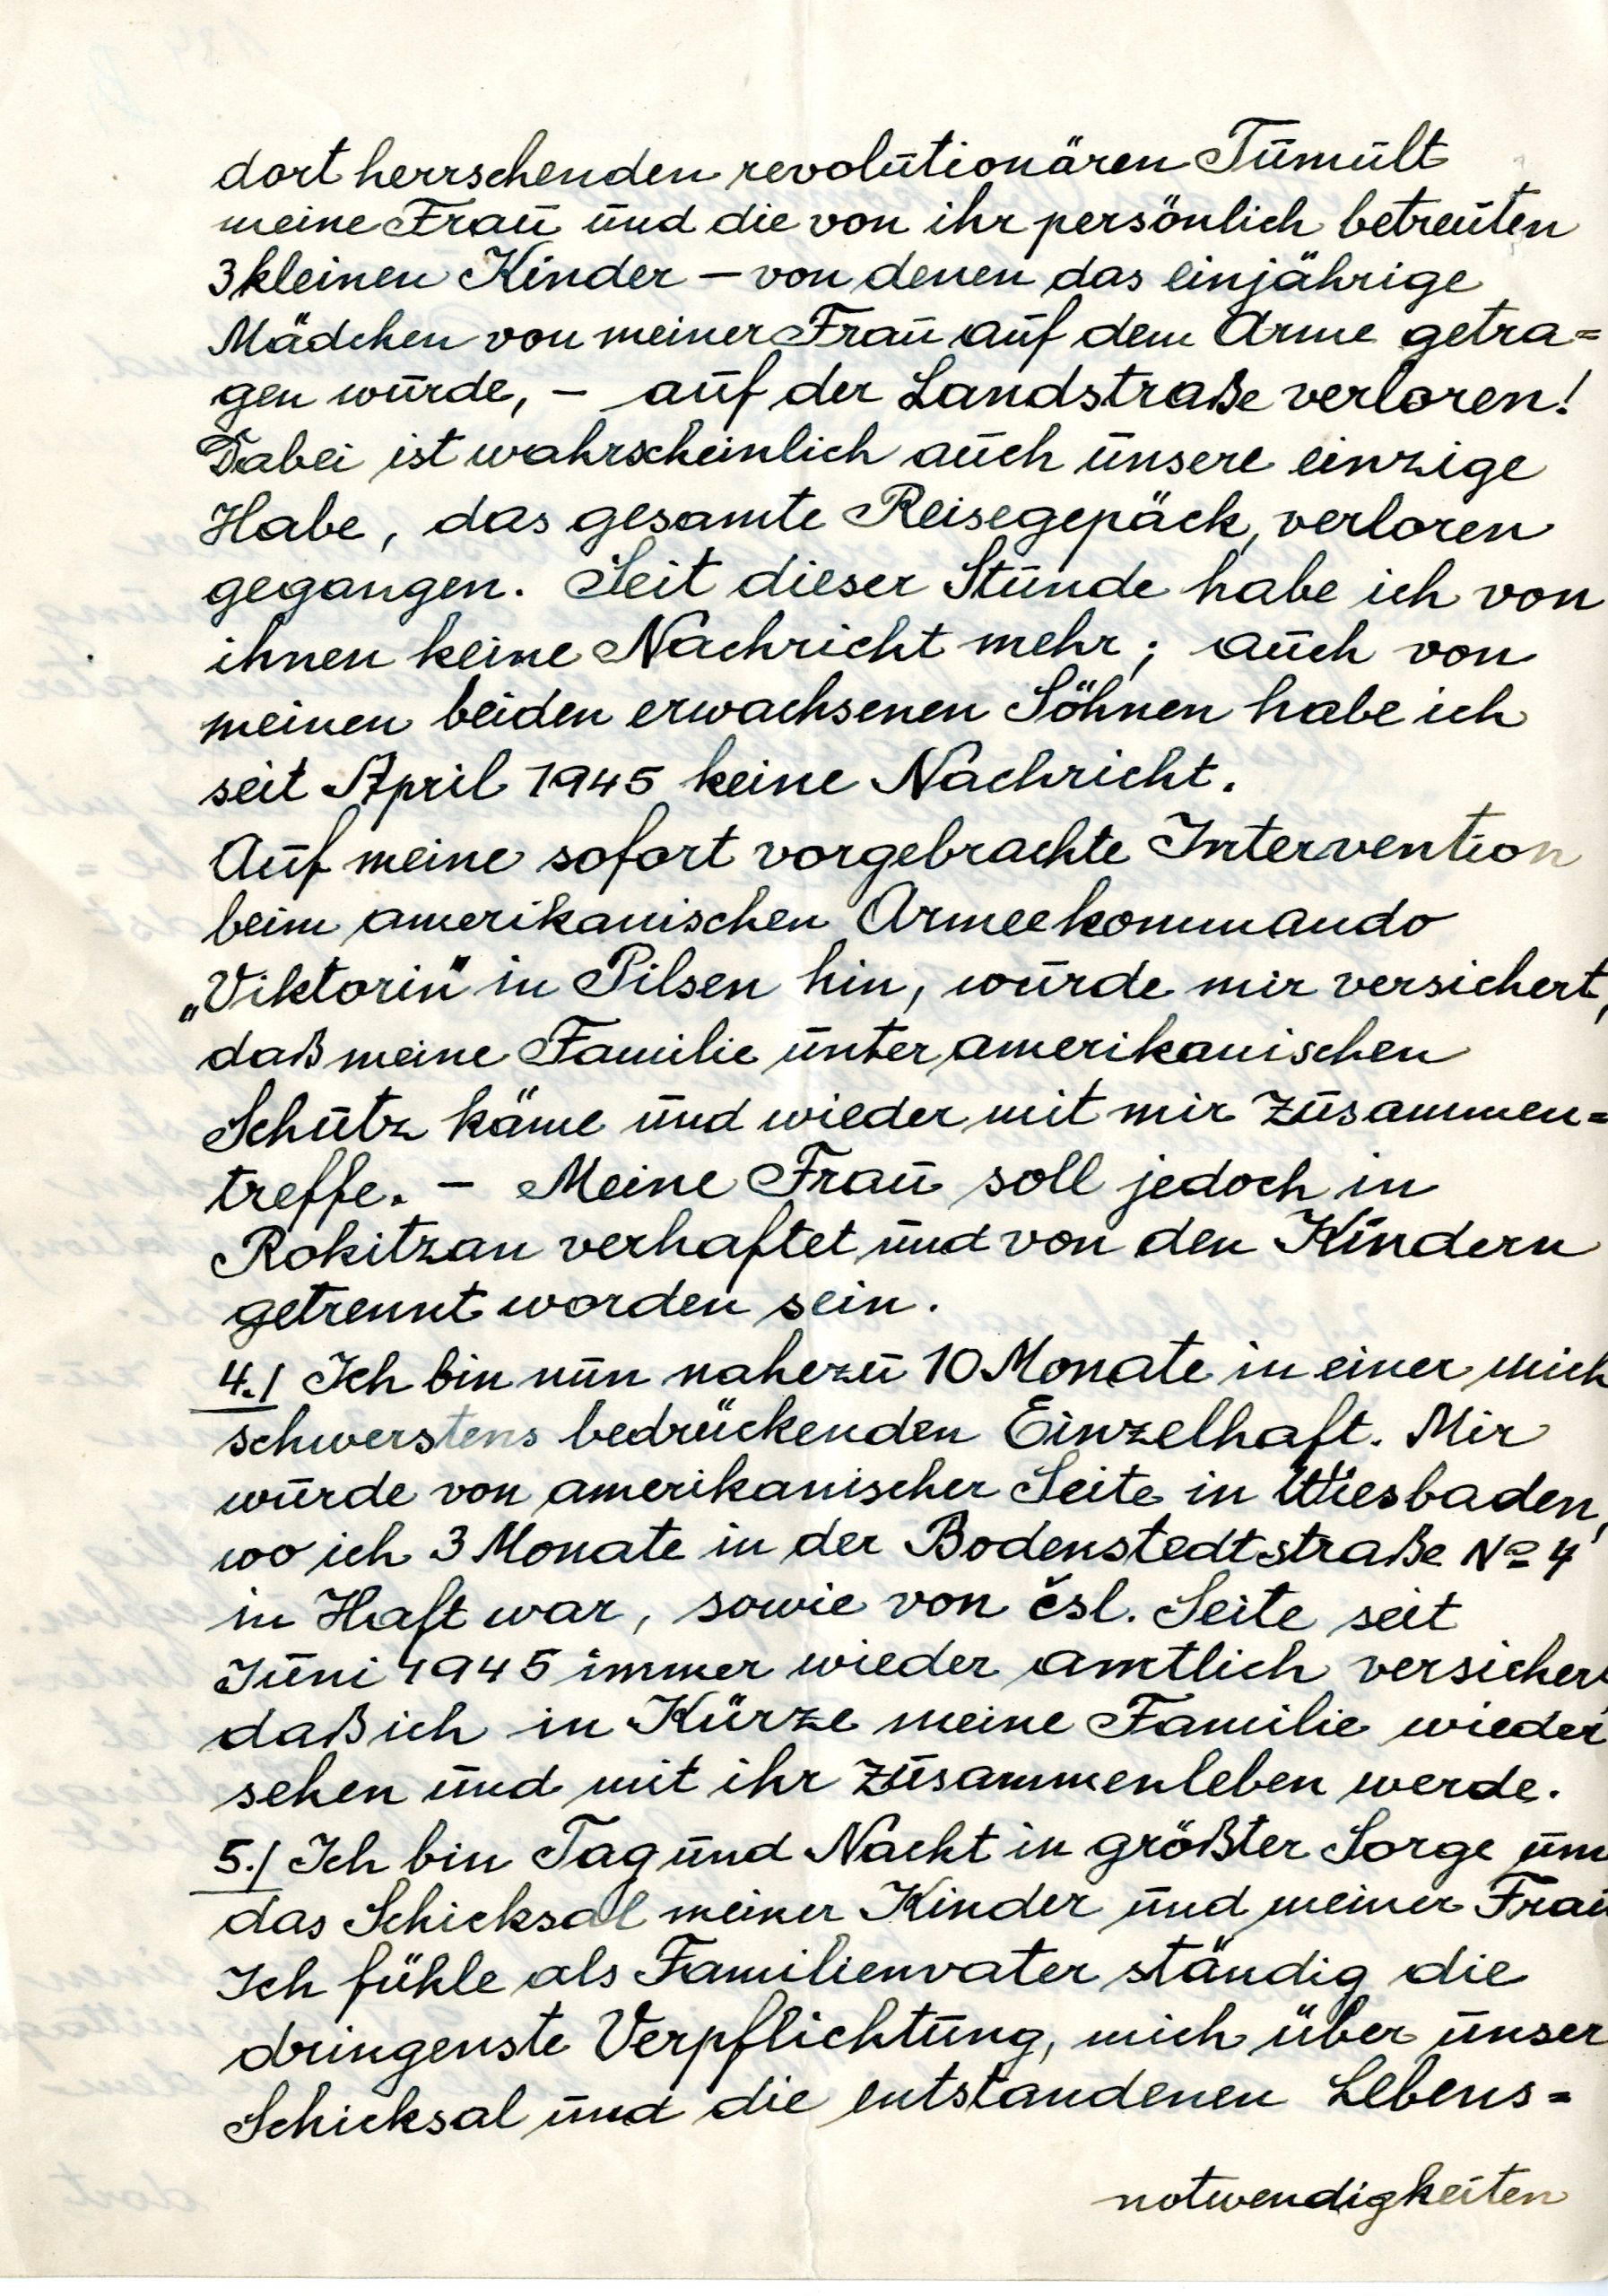 dort herrschenden revolutionären Tumult
meine Frau und die von ihr persönlich betreuten
3 kleinen Kinder – von denen das einjährige
Mädchen von meiner Frau auf dem Arme getra=
gen wurde, – auf der Landstraße verloren!
Dabei ist wahrscheinlich auch unsere einzige
Habe, das gesamte Reisegepäck, verloren
gegangen. Seit dieser Stunde habe ich von
ihnen keine Nachricht mehr; auch von
meinen beiden erwachsenen Söhnen habe ich
seit April 1945 keine Nachricht.
Auf meine sofort vorgebrachte Intervention
beim amerikanischen Armeekommando
„Viktorin" in Pilsen hin, wurde mir versichert,
daß meine Familie unter amerikanischen
Schutz käme und wieder mit mir zusammen=
treffe. – Meine Frau soll jedoch in
Rokitzan verhaftet und von den Kindern
getrennt worden sein.
4./ Ich bin nun nahezu 10 Monate in einer mich
schwerstens bedrückenden Einzelhaft. Mir
wurde von amerikanischer Seite in Wiesbaden,
wo ich 3 Monate in der Bodenstedtstraße No 4
in Haft war, sowie von čsl. Seite seit
Juni 1945 immer wieder amtlich versichert
daß ich in Kürze meine Familie wieder
sehen und mit ihr zusammenleben werde.
5./ Ich bin Tag und Nacht in größter Sorge um
das Schicksal meiner Kinder und meiner Frau
Ich fühle als Familienvater ständig die
dringenste Verpflichtung, mich über unser
Schicksal und die entstandenen Lebens=
notwendigkeiten